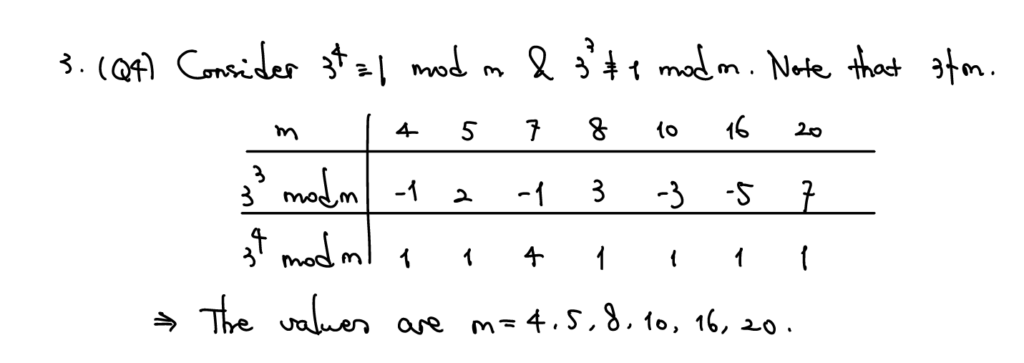 3. (Q4) Consider 3⁴ ≡ 1 mod m & 3³ ≢ 1 mod m. Note that 3∤m.
m | 4 5 7 8 10 16 20
3³ mod m | -1 2 -1 3 -3 -5 7
3⁴ mod m | 1 1 4 1 1 1 1
⇒ The values are m = 4, 5, 8, 10, 16, 20.